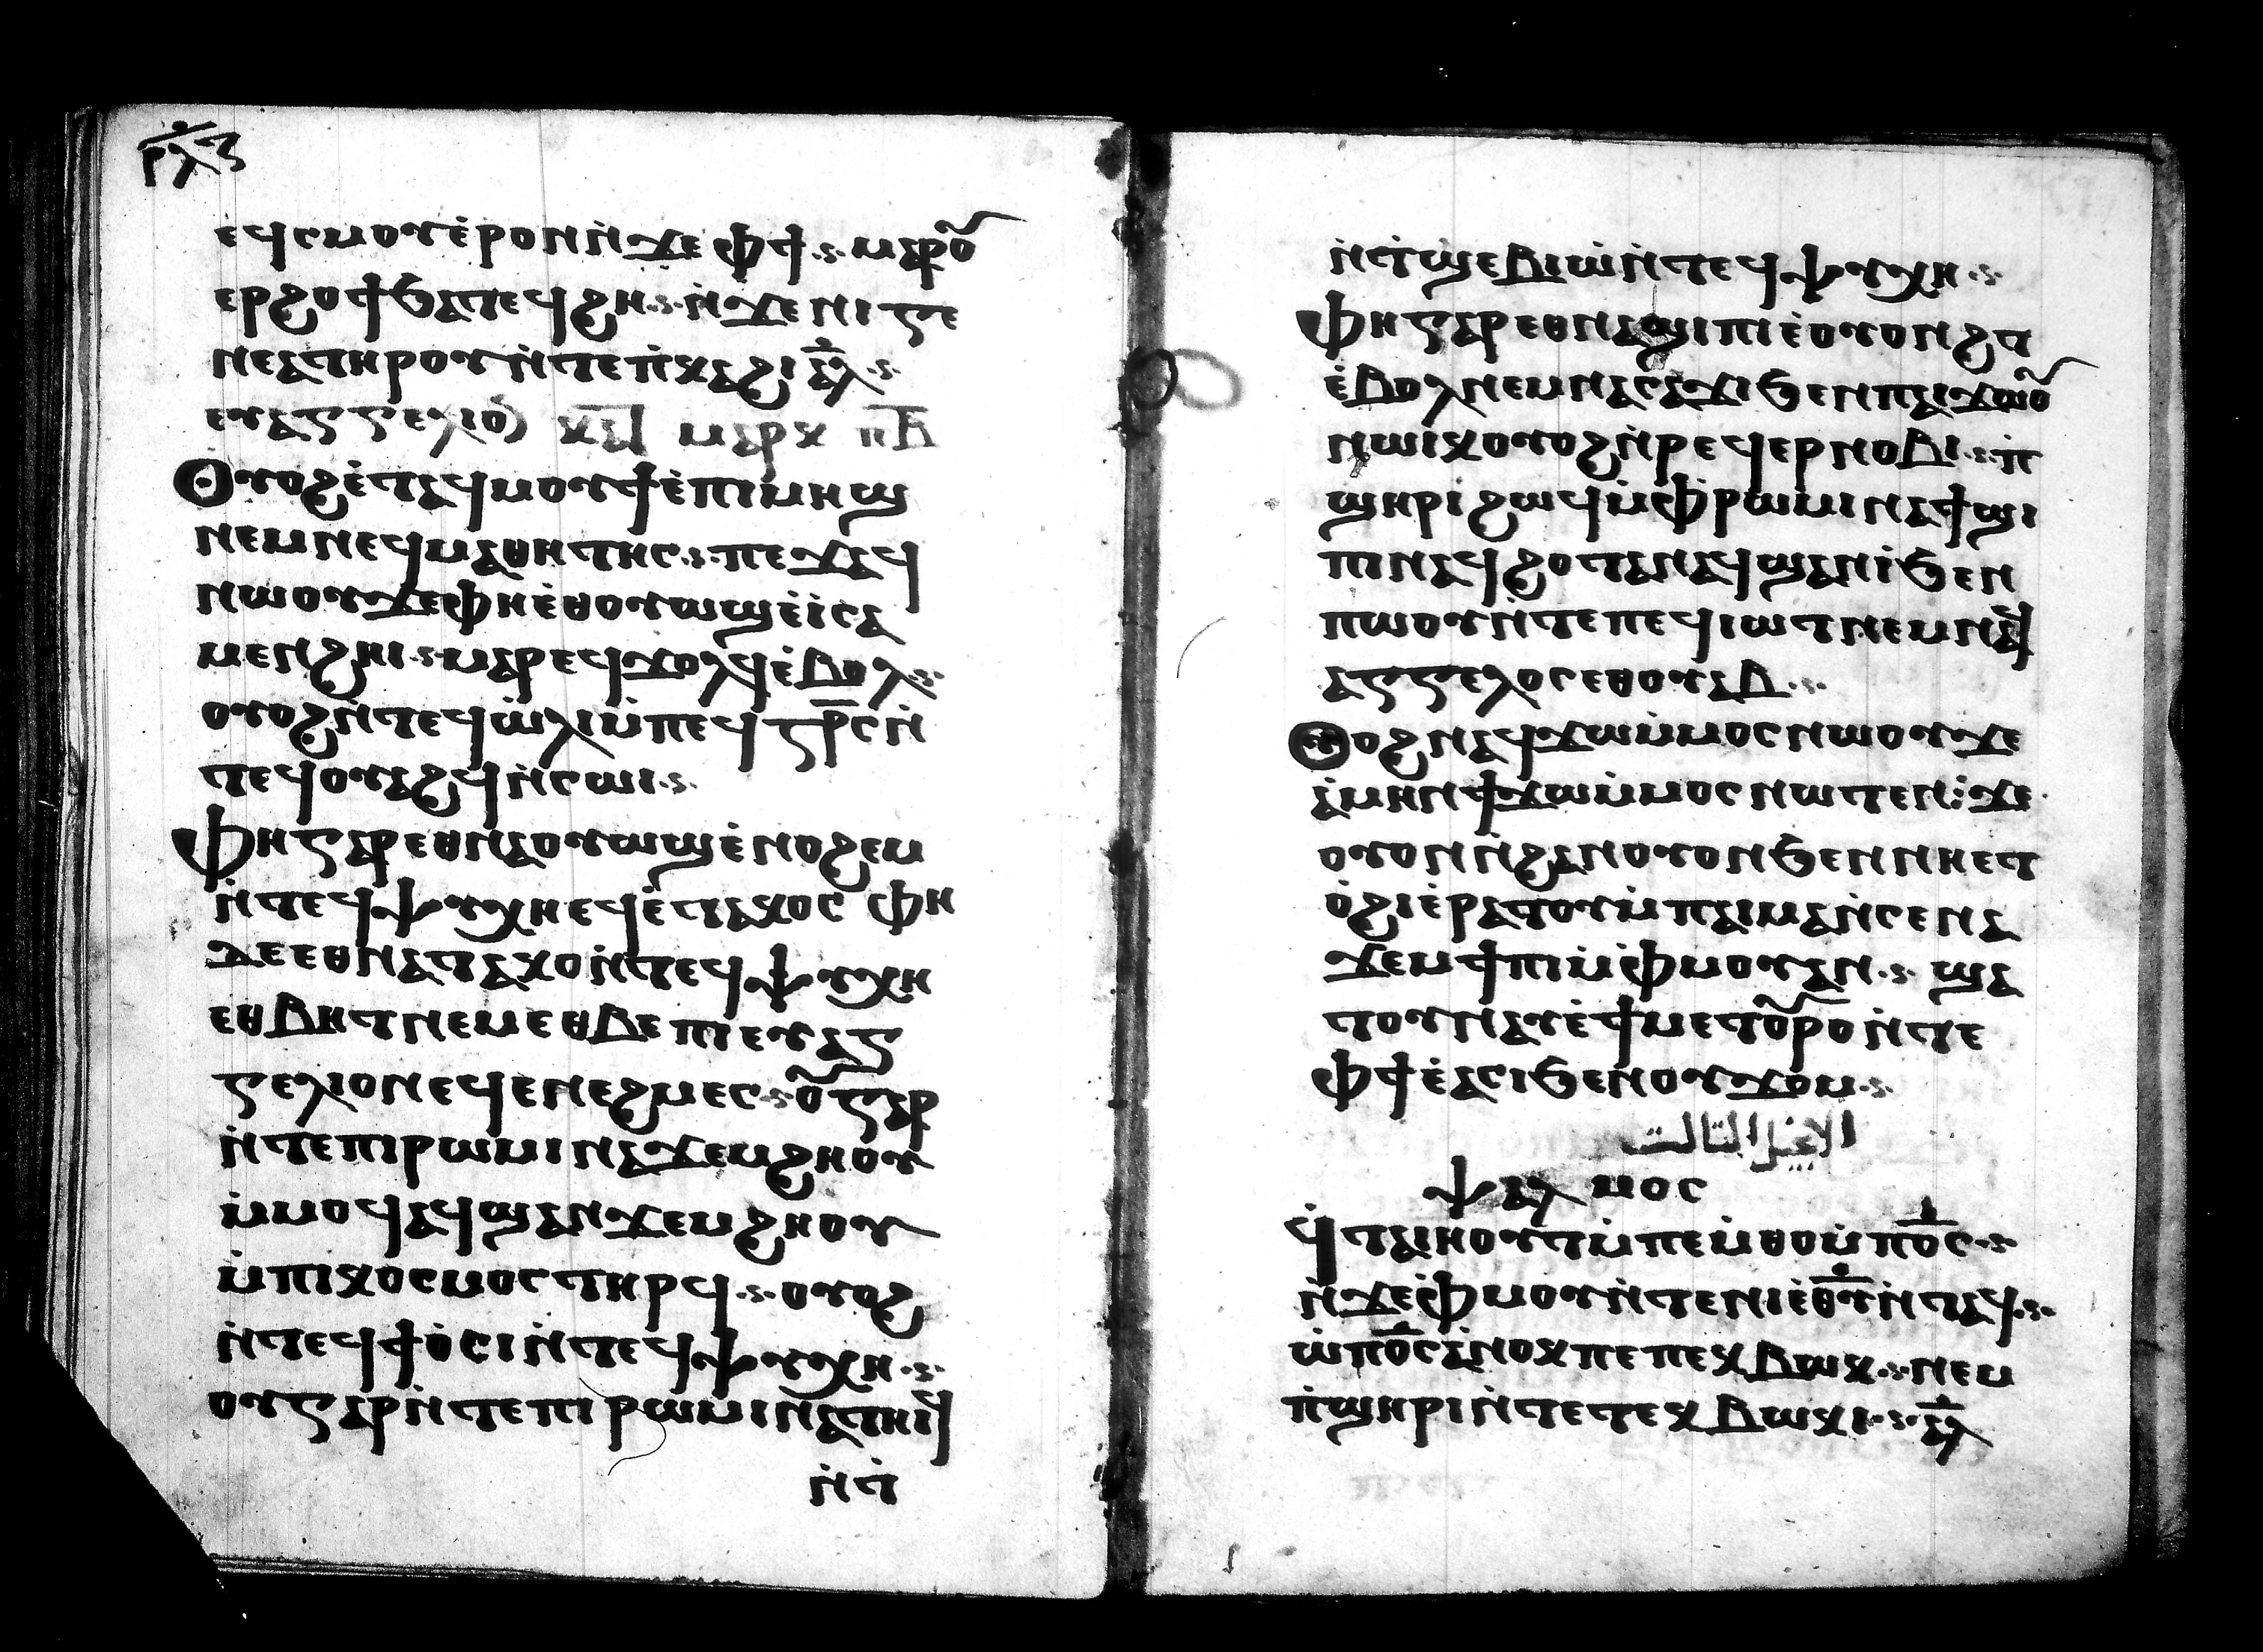 ⲣⲗⲋ
ⲉϥⲥⲙⲟⲩⲉ̀ⲣⲟⲛⲛ̀ϫⲉⲫϯ ⲙⲁⲣⲟⲩ
ⲉⲣϩⲟϯϧⲁⲧⲉϥϩⲏ ⲛ̀ϫⲉⲛⲓϭⲉ
ⲛⲉⲁⲧⲏⲣⲟⲩⲛ̀ⲧⲉⲡ̀ⲕⲁϩⲓ ⲁⲗ
ⲉⲩⲁⲅⲅⲉⲗⲓⲟ ⲙⲁⲣⲕ ⲡⲃ
Ⲟⲩⲟϩⲉ̀ⲧⲁϥⲙⲟⲩϯⲉ̀ⲡⲓⲙⲏϣ
ⲛⲉⲙⲛⲉϥⲙⲁⲑⲏⲧⲏⲥ ⲡⲉϫⲁϥ
ⲛⲱⲟⲩϫⲉⲫⲏⲉ̀ⲑⲟⲩⲱϣⲉ̀ⲓ̀ⲥⲁ
ⲙⲉⲛϩⲏⲓ ⲙⲁⲣⲉϥϫⲟⲗϥⲉ̀ⲃⲟⲗ
ⲟⲩⲟϩⲛ̀ⲧⲉϥⲱ̀ⲗⲓⲙ̀ⲡⲉϥⲥⲧⲣⲥⲛ̀
ⲧⲉϥⲟⲩⲁϩϥⲛ̀ⲥⲱⲓ
Ⲫⲏⲅⲁⲣⲉⲑⲛⲁⲟⲩⲱϣⲉ̀ⲛⲟϩⲉⲙ
ⲛ̀ⲧⲉϥⲯⲩⲭⲏⲉϥⲉ̀ⲧⲁⲕⲟⲥ ⲫⲏ
ⲇⲉⲉⲑⲛⲁⲧⲁⲕⲟⲛ̀ⲧⲉϥⲯⲩⲭⲏ
ⲉⲑⲃⲏⲧⲛⲉⲙⲉⲑⲃⲉⲡⲓⲉⲩⲁⲅ
ⲅⲉⲗⲓⲟⲛⲉϥⲉⲛⲉϩⲙⲉⲥ ⲟⲩⲅⲁⲣ
ⲛ̀ⲧⲉⲡⲓⲣⲱⲙⲓⲛⲁϫⲉⲙϩⲏⲟⲩ
ⲙ̀ⲙⲟϥⲁϥϣⲁⲛϫⲉⲙϩⲏⲟⲩ
ⲙ̀ⲡⲓⲕⲟⲥⲙⲟⲥⲧⲏⲣϥ ⲟⲩⲟϩ
ⲛ̀ⲧⲉϥϯⲟ̀ⲥⲓⲛ̀ⲧⲉϥⲯⲩⲭⲏ
ⲟⲩⲅⲁⲣⲛ̀ⲧⲉⲡⲓⲣⲱⲙⲓⲛⲁⲧⲏⲓϥ
ⲛ̀ⲧ̀
ⲛ̀ⲧ̀ϣⲉⲃⲓⲱ̀ⲛ̀ⲧⲉϥⲯⲩⲭⲏ
Ⲫⲏⲅⲁⲣⲉⲑⲛⲁϣⲓⲡⲓⲉ̀ⲟⲩⲟⲛϩⲧ
ⲉ̀ⲃⲟⲗⲛⲉⲙⲛⲁⲥⲁϫⲓϧⲉⲛⲡⲁⲓϫⲱⲟⲩ
ⲛⲱⲓⲕⲟⲩⲟϩⲛ̀ⲣⲉϥⲉⲣⲛⲟⲃⲓ ⲡ̀
ϣⲏⲣⲓϩⲱϥⲙ̀ⲫⲣⲱⲙⲓⲛⲁϯϣⲓ
ⲡⲓⲛⲁϥϩⲟⲧⲁⲛⲁϥϣⲁⲛⲓ̀ϧⲉⲛ
ⲡⲱⲟⲩⲛ̀ⲧⲉⲡⲉϥⲓⲱⲧⲛⲉⲙⲛⲁϥ
ⲁⲅⲅⲉⲗⲟⲥⲉⲑⲟⲩⲁⲃ
Ⲟⲩⲟϩⲛⲁϥϫⲱⲙ̀ⲙⲟⲥⲛⲱⲟⲩϫⲉ
ⲁ̀ⲙⲏⲛϯϫⲱⲙ̀ⲙⲟⲥⲛⲱⲧⲉⲛ ϫⲉ
ⲟⲩⲟⲛⲛ̀ϩⲁⲛⲟⲩⲟⲛϧⲉⲛⲛⲏⲉⲧ
ⲟ̀ϩⲓⲉ̀ⲣⲁⲧⲟⲩⲙ̀ⲡⲁⲓⲙⲁⲛ̀ⲥⲉⲛⲁ
ϫⲉⲙϯⲡⲓⲙ̀ⲫⲙⲟⲩⲁⲛ ϣⲁ
ⲧⲟⲩⲛⲁⲩⲉ̀ϯⲙⲉⲧⲟⲩⲣⲟⲛ̀ⲧⲉ
ⲫϯⲉ̀ⲁⲥⲓϧⲉⲛⲟⲩϫⲟⲙ
الانجيل التالت
ⲯⲁⲗⲙⲟⲥ
ϥ̀ⲧⲁⲓⲏⲟⲩⲧⲙ̀ⲡⲉⲙ̀ⲑⲟⲙ̀ⲡⲟⲥ
ⲛ̀ϫⲉⲫ̀ⲙⲟⲩⲛ̀ⲧⲉⲛⲓⲉ̀ⲑⲩⲛ̀ⲧⲁϥ
ⲱ̀ⲡⲟⲥⲁ̀ⲛⲟⲕⲡⲉⲡⲉⲕⲃⲱⲕ ⲛⲉⲙ
ⲡ̀ϣⲏⲣⲓⲛ̀ⲧⲉⲧⲉⲕⲃⲱⲕⲓ ⲁⲗ